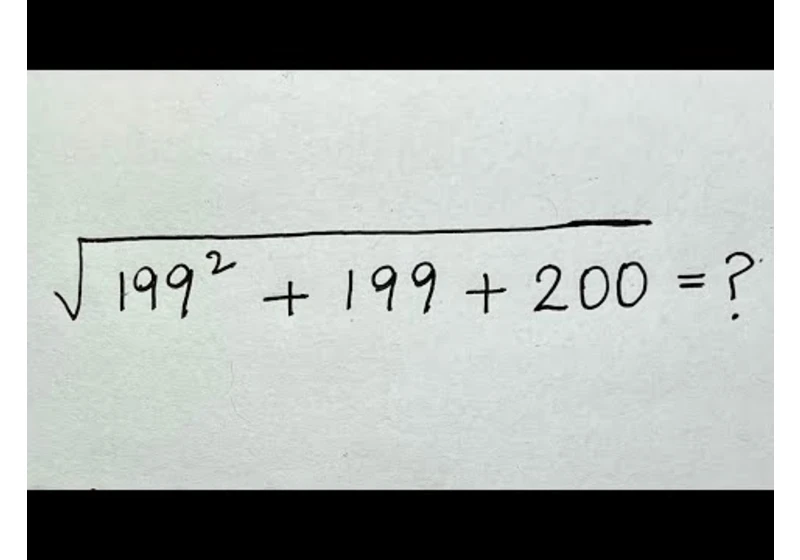 √(199² + 199 + 200) = ?